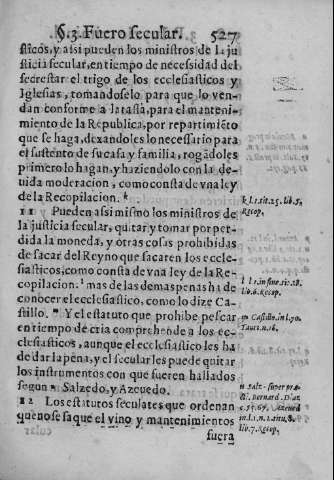 §. 3. Fuero secular. 527
sticos, y assi pueden los ministros de la ju
sticia secular, en tiempo de necessidad del
secrestar el trigo de los ecclesiasticos y
Iglesias, tomandoselo para que lo ven-
dan conforme a la tassa, para el manteni-
miento de la Republica, por repartimiẽto
que se haga, dexandoles lo necessario para
el sustento de su casa y familia, rogãdoles
primero lo hagan, y haziendolo con la de-
uida moderacion, como consta de vna ley
de la Recopilacion. k
11 Pueden assi mismo los ministros de
la justicia secular, quitar, y tomar por per-
dida la moneda, y otras cosas prohibidas
de sacar del Reyno que sacaren los eccle-
siasticos, como consta de vna ley de la Re-
copilacion. l mas de las demas penas ha de
conocer el ecclesiastico, como lo dize Ca-
stillo. m Y el estatuto que prohibe pescar
en tiempo de cria comprehende a los ec-
clesiasticos, aunque el ecclesiastico les ha
de dar la pena, y el secular les puede quitar
los instrumentos con que fueren hallados
segun n Salzedo, y Azeuedo.
12 Los estatutos seculares que ordenan
que no se saque el vino y mantenimientos
fuera
k l. 1. tit. 25. lib. 5.
Recop.
l l. 1. in fine tit. 18.
lib. 6. Recop.
m Castillo in l. 70.
Taur. n. 16.
n Salz. super pra
Bernard. Diaz
c. 55. 67. Azeued
in l. 1. n. 1. titu. 8.
lib. 7. Recop.